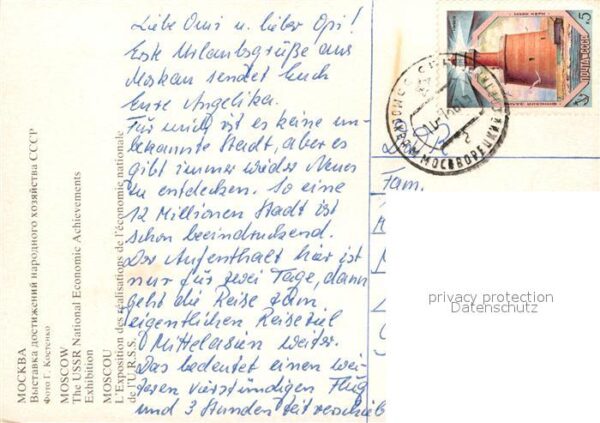 Liebe Omi u. lieber Opi!
Erste Urlaubsgrüße aus
Moskau sendet Euch
Eure Angelika.
Für mich ist es keine un-
bekannte Stadt, aber es
gibt immer wieder Neues
zu entdecken. So eine
12 Millionen Stadt ist
schon beeindruckend.
Der Aufenthalt hier ist
nur für zwei Tage, dann
geht die Reise zum
eigentlichen Reiseziel
Mittelasien weiter.
Das bedeutet einen wei-
teren vierstündigen Flug
und 3 Stunden Zeitverschieb
Fam.
МОСКВА
Выставка достижений народного хозяйства СССР
Фото Г. Костенко
MOSCOW
The USSR National Economic Achievements
Exhibition
MOSCOU
L'Exposition des réalisations de l'économie nationale
de l'U.R.S.S.
ПОЧТА СССР
5
privacy protection
Datenschutz